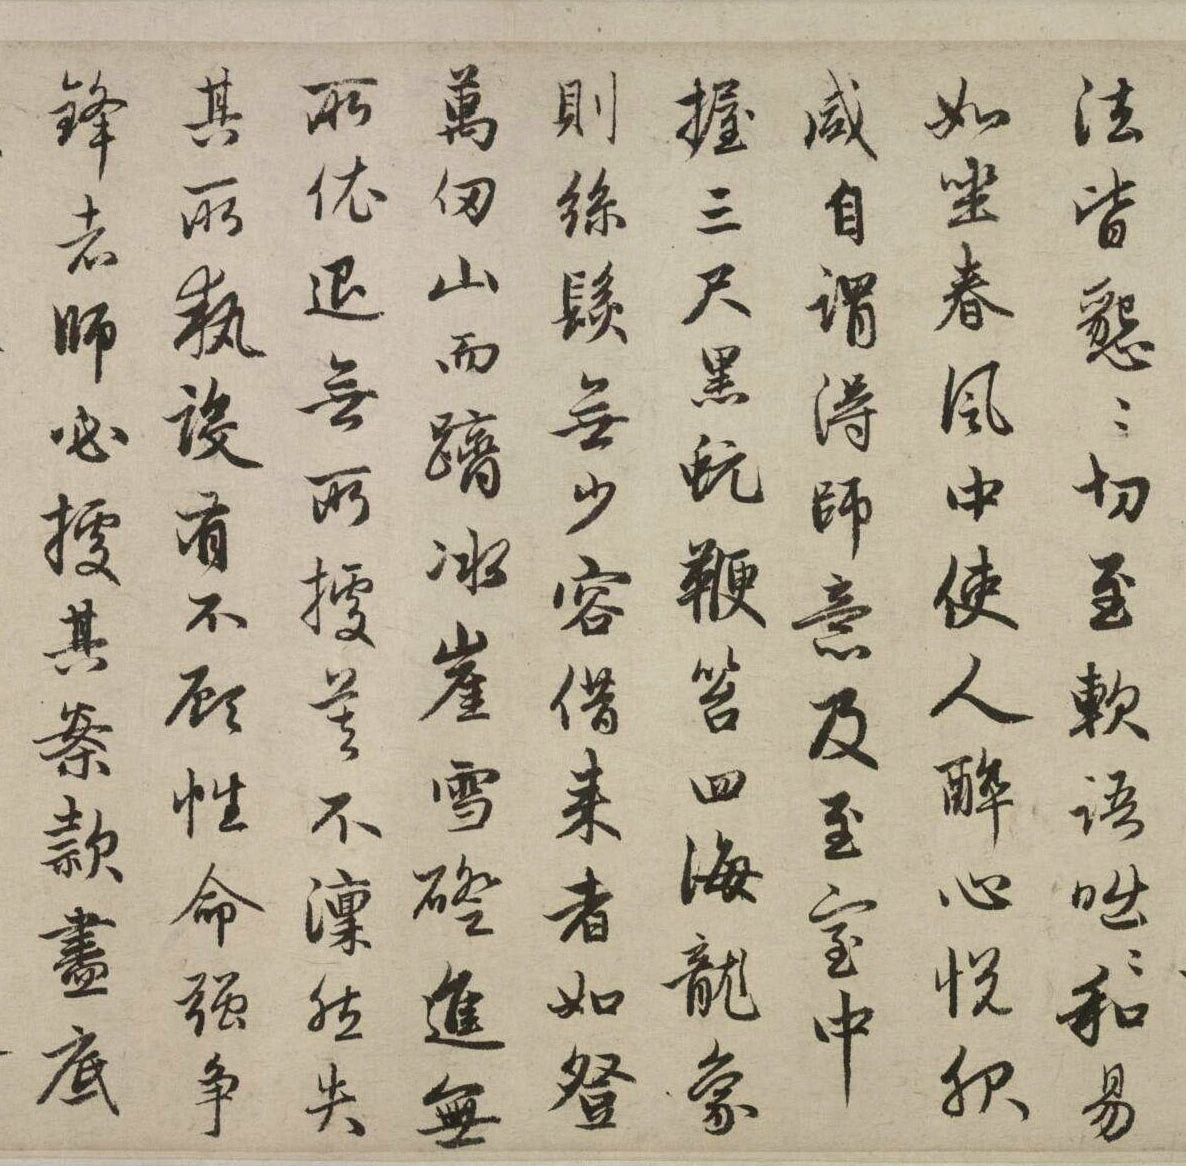 法皆懇〻切至軟語咄〻和易
如坐春風中使人醉心悅服
咸自謂得師意及至室中
握三尺黑蚖鞭笞四海龍象
則絲髮無少容借来者如登
萬仞山而躋冰崖雪磴進無
所依退無所據莫不凜然失
其所執設有不顧性命强争
鋒者師必據其案款盡底